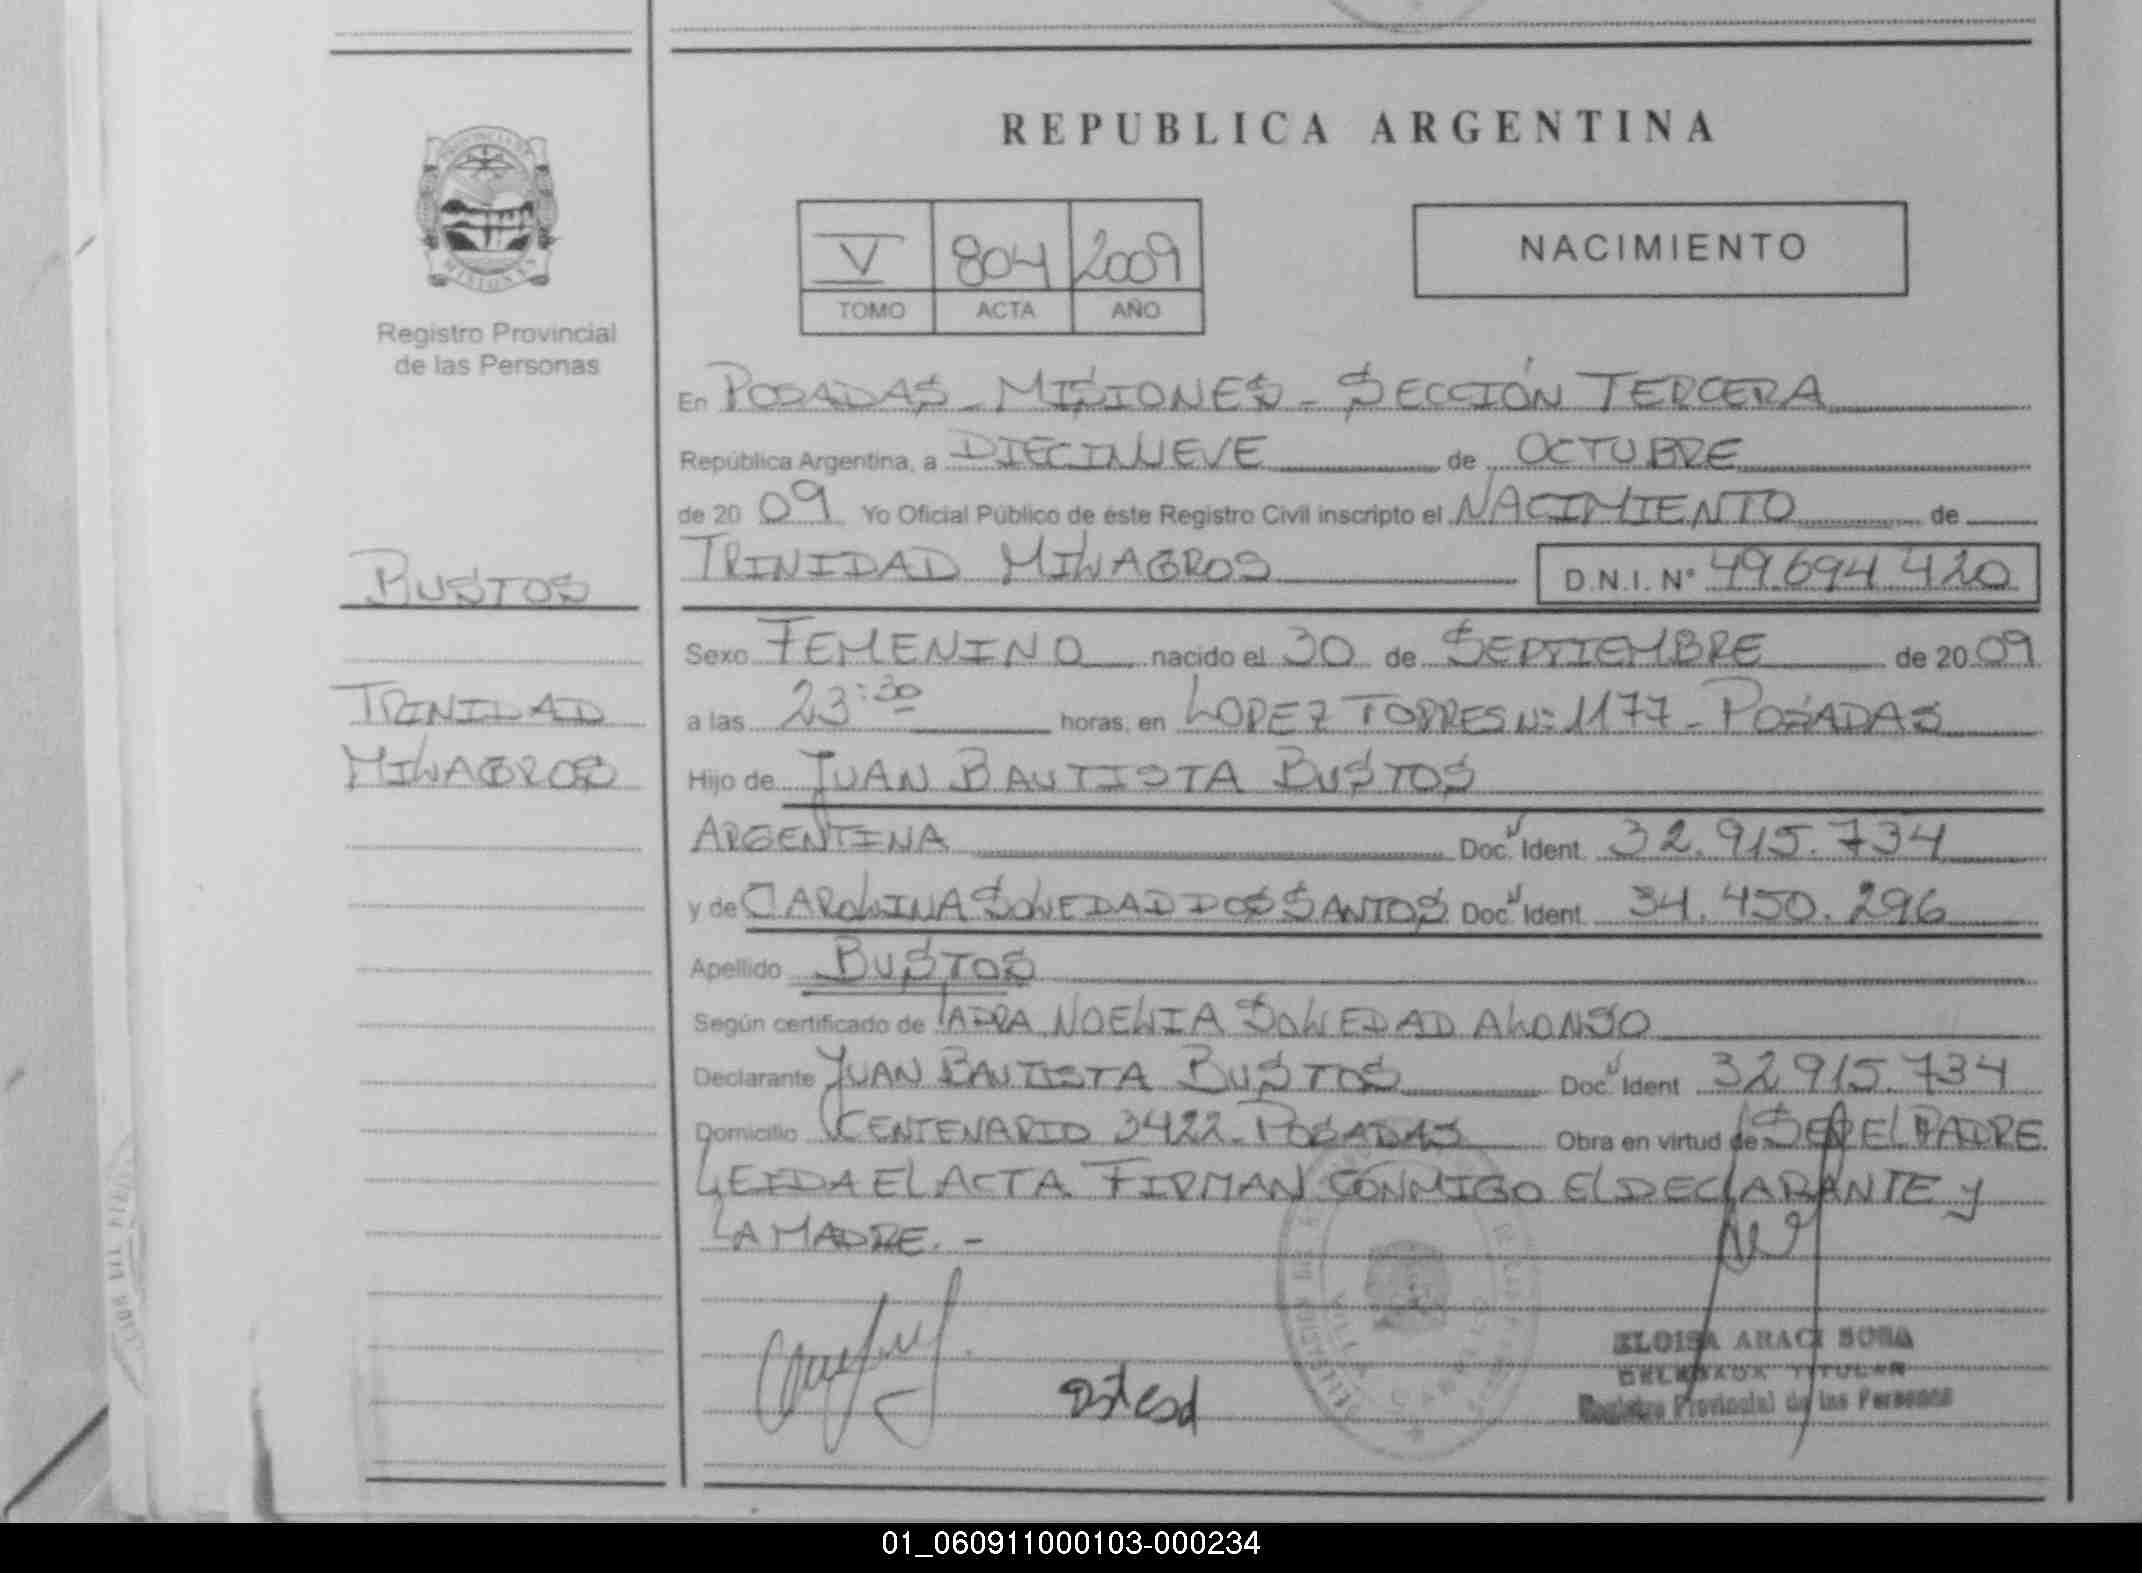 REPUBLICA ARGENTINA
PROVINCIA DE
MISIONES
Registro Provincial
de las Personas
V 804 2009
TOMO ACTA AÑO
NACIMIENTO
En POSADAS - MISIONES - SECCIÓN TERCERA
República Argentina, a DIECINUEVE de OCTUBRE
de 20 09 Yo Oficial Público de éste Registro Civil inscripto el NACIMIENTO de
TRINIDAD MILAGROS D.N.I. N° 49.694.420
BUSTOS
Sexo FEMENINO nacido el 30 de SEPTIEMBRE de 20 09
TRINIDAD
a las 23:30 horas, en LOPEZ TORRES Nº 1177 - POSADAS
MILAGROS
Hijo de JUAN BAUTISTA BUSTOS
ARGENTINA Doc. Ident. 32.915.734
y de CAROLINA SOLEDAD DOS SANTOS Doc. Ident. 34.450.296
Apellido BUSTOS
Según certificado de NOELIA SOLEDAD ALONSO
Declarante JUAN BAUTISTA BUSTOS Doc. Ident. 32.915.734
Domicilio CENTENARIO 3422 - POSADAS Obra en virtud de SER EL PADRE
LEIDA EL ACTA FIRMAN CONMIGO EL DECLARANTE y
LA MADRE. -
ELOISA ARACI SOSA
DELEGADA TITULAR
Registro Provincial de las Personas
01_060911000103-000234